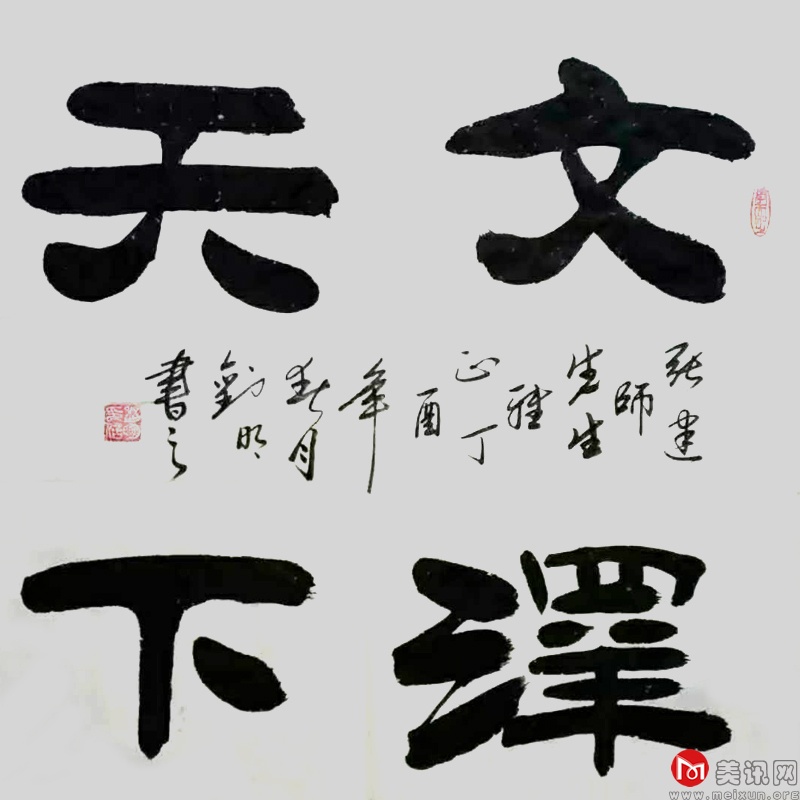 文澤
天下
張建
師
先生
雅
正丁
酉
年
春月
劉明
書之
美讯网
www.meixun.org